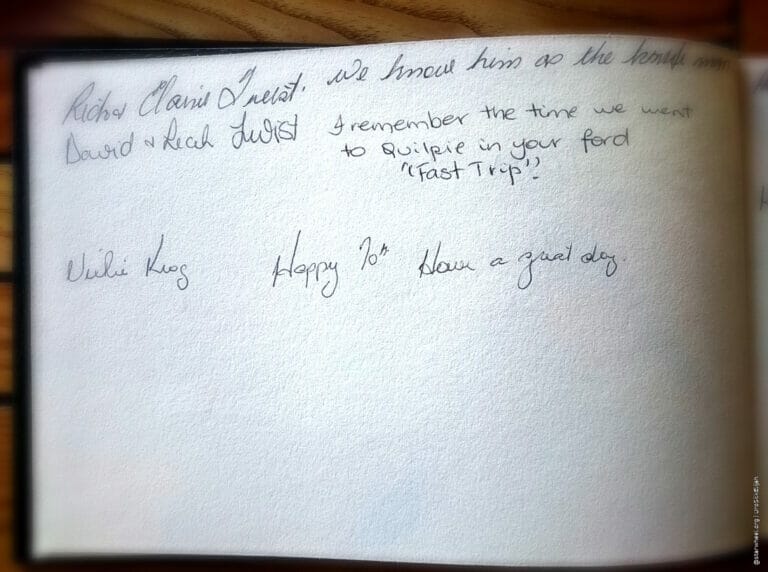 Richar Clarrie Twist. We know him as the
David & Leah Twist I remember the time we went
to Quilpie in your ford
"Fast Trip"!
Vicki King Happy 70th Have a great day.